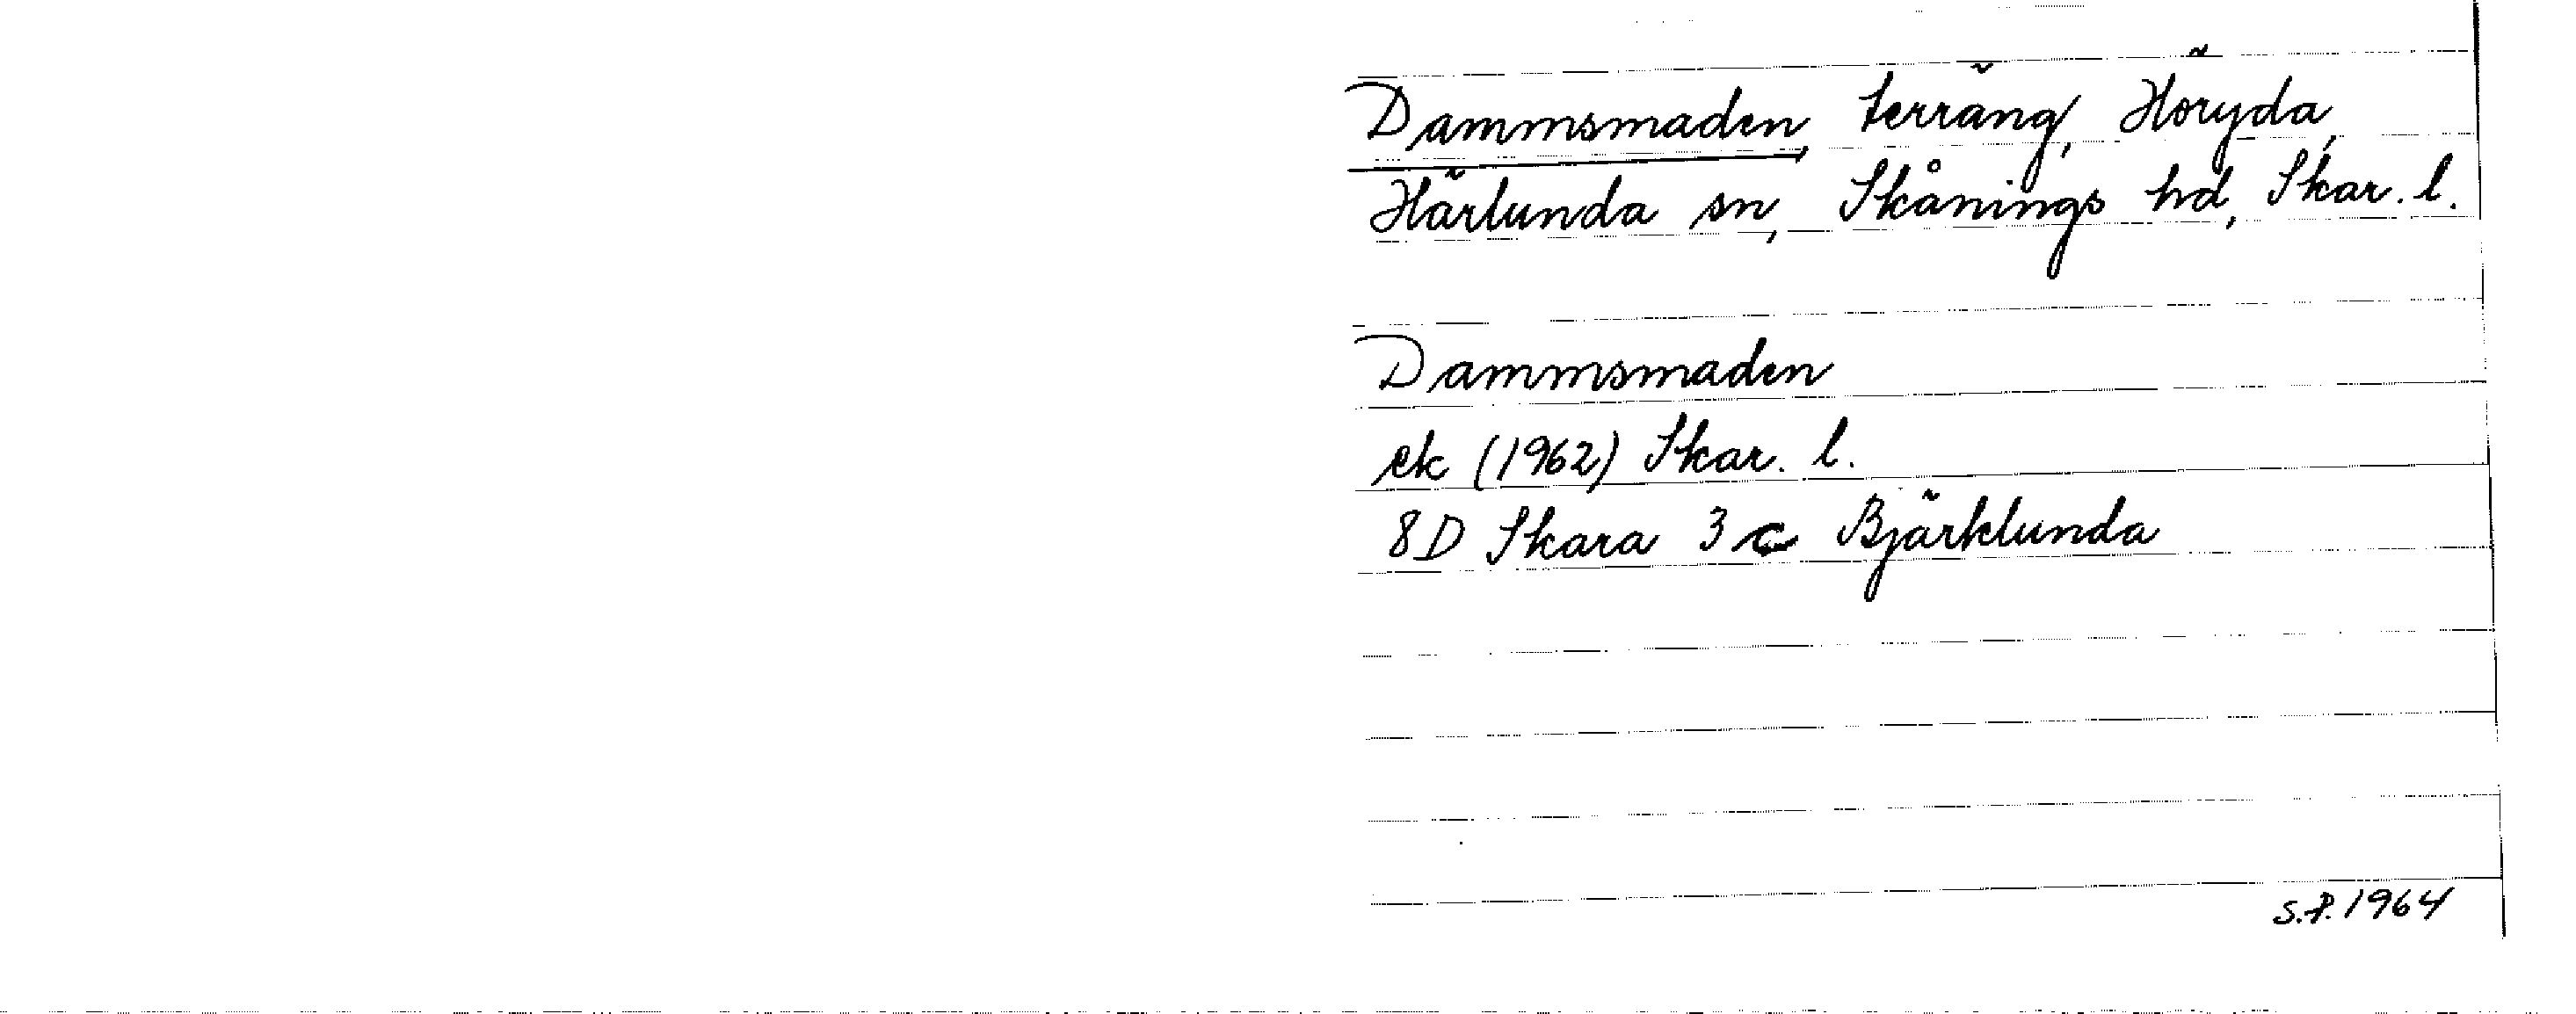 Dammsmaden, terräng, Höryda,
Härlunda sn, Skånings hd, Skar. l.
Dammsmaden
ek (1962) Skar. l.
8D Skara 3 c Bjärklunda
S.P. 1964